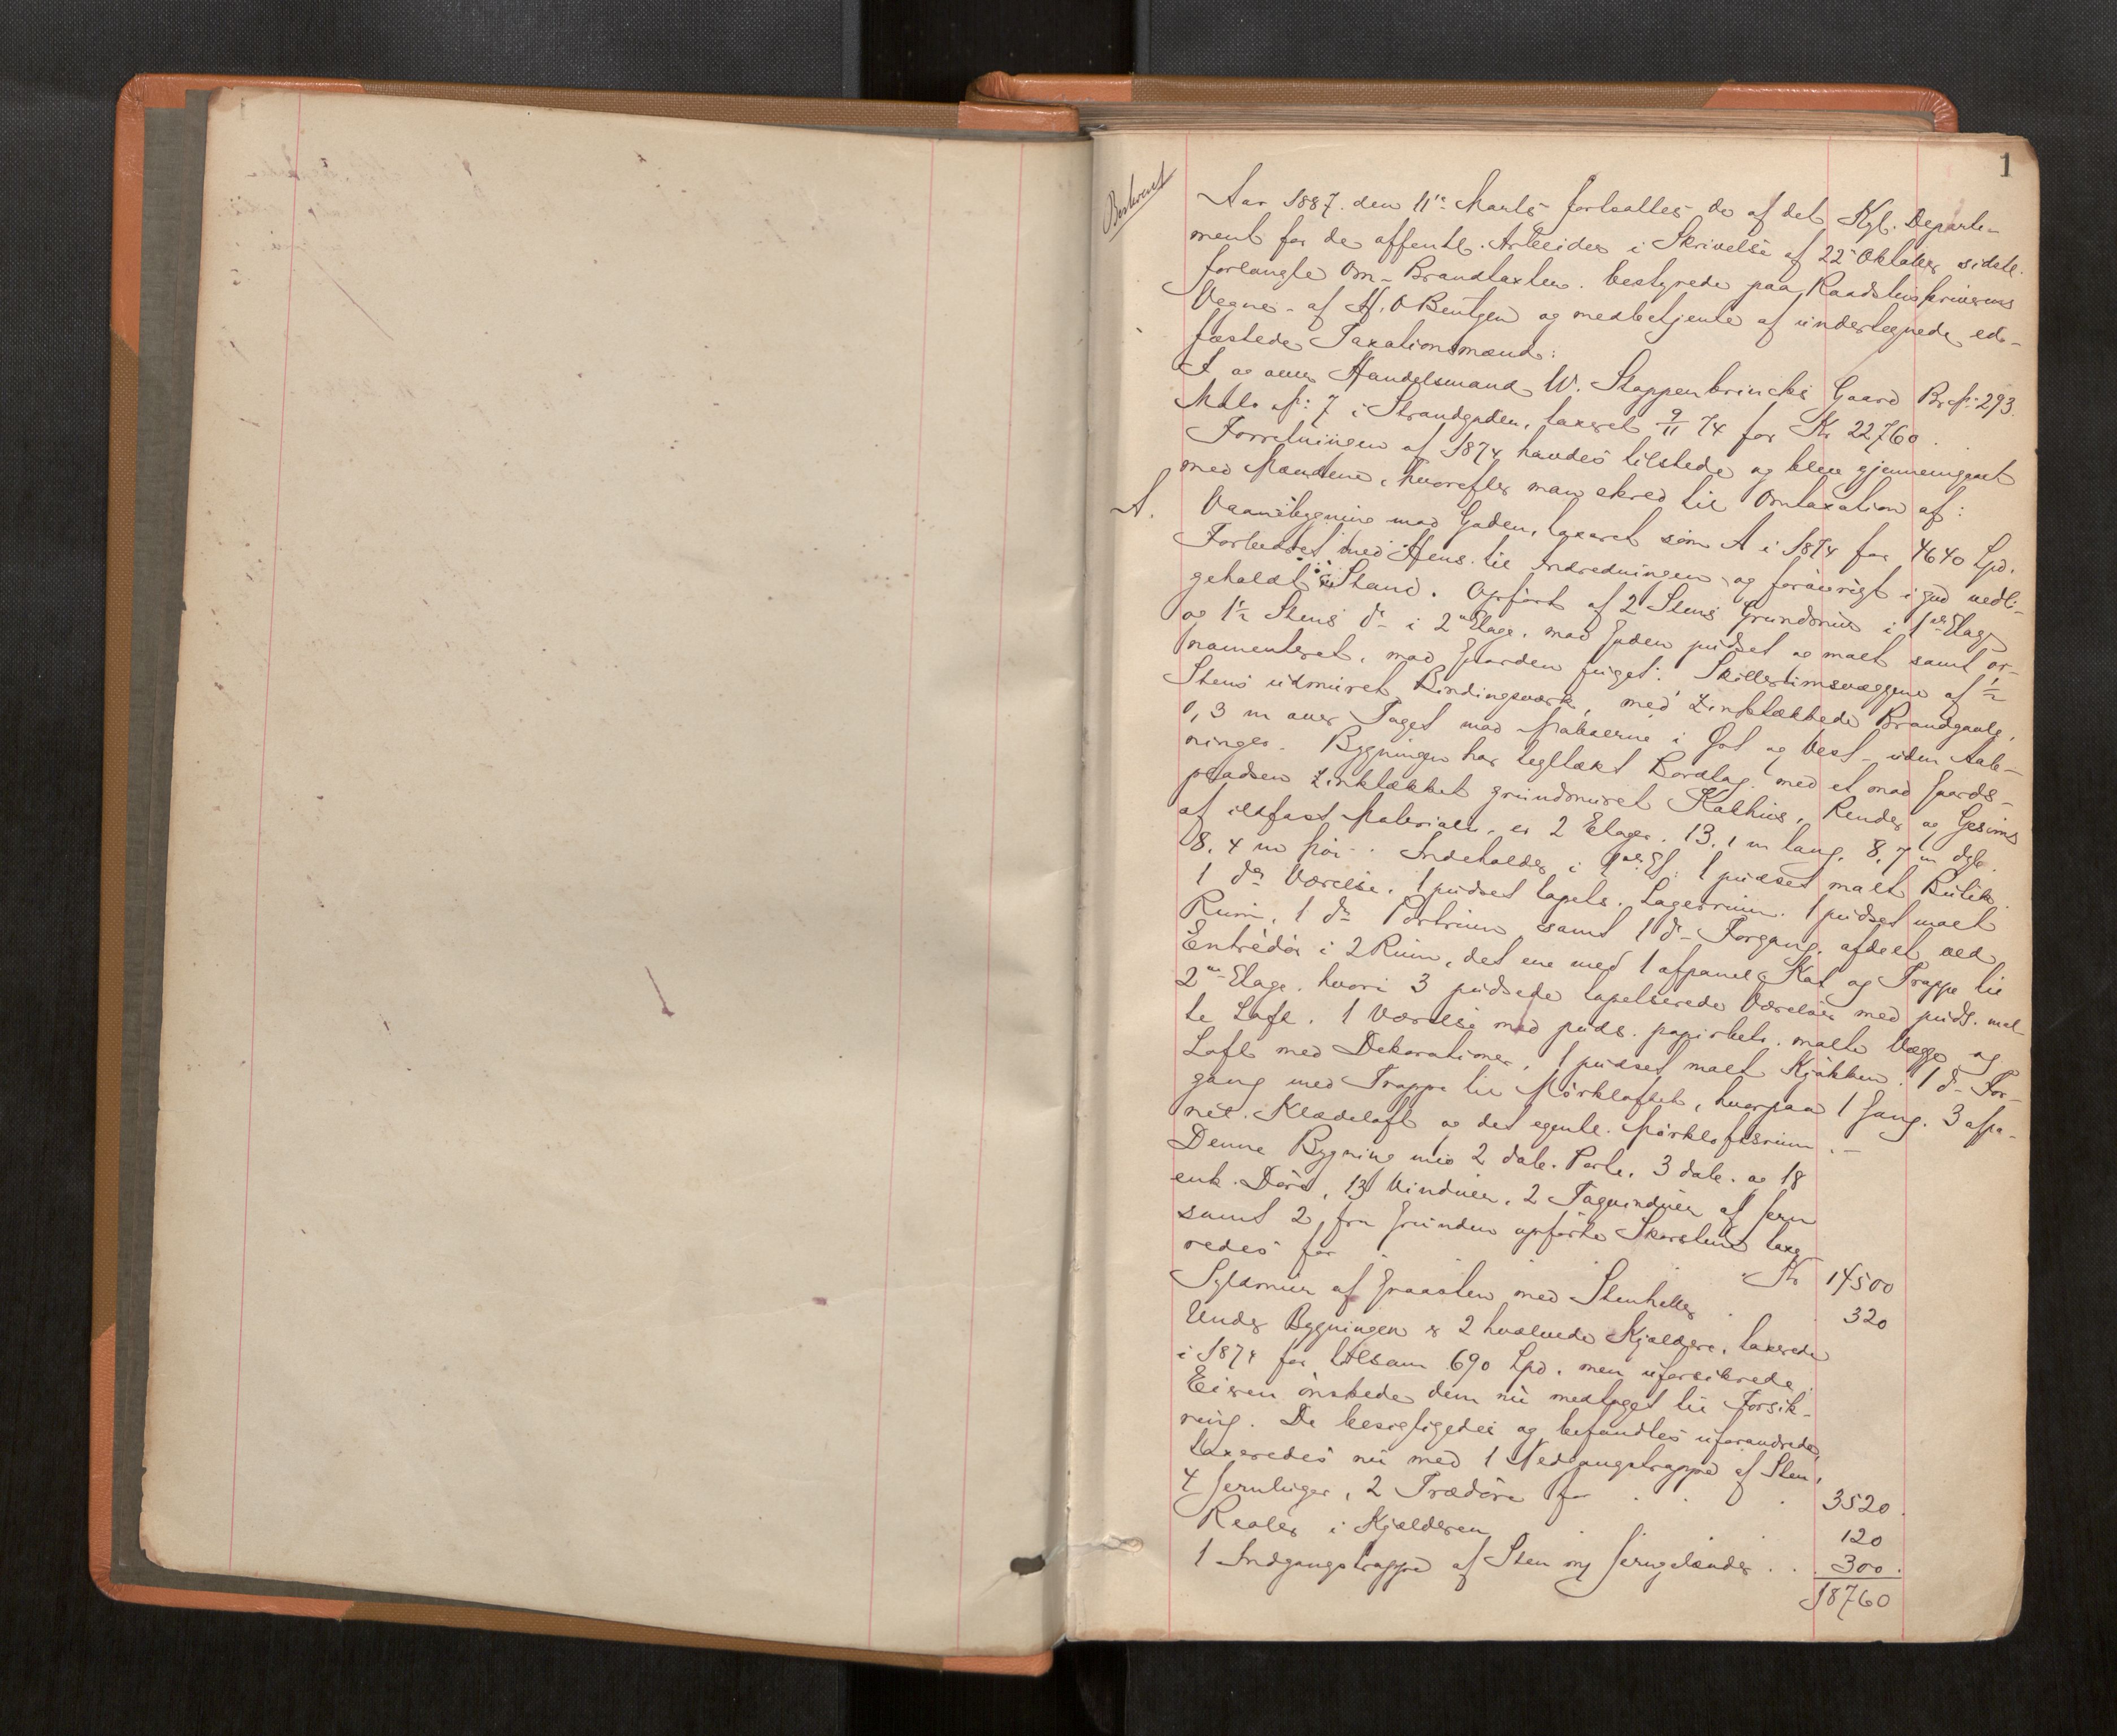 1
Aar 1887 den 11te Marts fortsattes de af det Kgl. Departe-
ment for de offentl. Arbeider i Skrivelse af 22 Oktober sidstl.
forlangte Om-Brandtaxter, bestyrede paa Raadstueskriverens
Vegne af H. O Bentzen og medbetjente af undertegnede, ed-
fæstede Taxationsmænd:
I og over Handelsmand W. Stoppenbrincks Gaard Br№ 293.
Mtls №: 7 i Strandgaden, taxeret 9/11 74 for Kr 22760.
Forretningen af 1874 havdes tilstede og blev gjennemgaaet
med Mændene, hvorefter man skred til Omtaxation af:
A. Vaaningsbygning mod Gaden, taxeret som A i 1874 for 4640 Spd.
Forbedret med Hens. til Indredningen, og forøvrigt i god vedli-
geholdt Stand. Opført af 2 Stens Grundmur i 1ste Etage
og 1½ Stens do i 2den Etage, mod Gaden pudset og malt samt or-
namenteret, mod Gaarden fuget. Skillerumsvæggene af ½
Stens udmuret Bindingsværk, med zinktækkede Brandgavle,
0,3 m over Taget mod Naboerne i Øst og Vest, uden Aab-
ninger. Bygningen har tegltækt Bordtag med et mod Gaards-
pladsen zinktækket grundmuret Kakhus, Render og Gesims
af ildfast Materiale, er 2 Etager, 13,1 m lang, 8,7 m dyb
8,4 m høi. Indeholder i 1ste Et. 1 pudset malt Butik.
1 do Værelse, 1 pudset tapets. Lagerrum. 1 pudset malt
Rum, 1 do Portrum samt 1 do Forgang, afdelt ved
Entrédør i 2 Rum, det ene med 1 afpanelt Kot og Trappe til
2den Etage, hvori 3 pudsede tapetserede Værelser med puds. mal-
te Loft. 1 Værelse med puds. papirbetr. malte Vægge og
Loft med Dekorationer, 1 pudset malt Kjøkken. 1 do For-
gang med Trappe til Mørkloftet, hvorpaa 1 Gang. 3 afpa-
nel. Klædeloft og det egentl. Mørkloftsrum.
Denne Bygning med 2 dob. Porte, 3 dob. og 18
enk. Døre, 13 Vinduer, 2 Tagvinduer af Jern
samt 2, fra Grunden opførte Skorstene taxe-
redes for . . Kr 14500
Syldmur af Graasten med Stenheller . . 320
Under Bygningen er 2 hvælvede Kjældere, taxerede
i 1874 for tilsam 690 Spd. men uforsikrede.
Eieren ønskede dem nu medtaget til Forsik-
ring. De besigtigedes og befandtes uforandrede,
taxeredes nu med 1 Nedgangstrappe af Sten,
4 Jernluger, 2 Trædøre for . . . 3520.
Reoler i Kjælderen . 120
1 Indgangstrappe af Sten m/ Jerngelænder . . 300.
18760